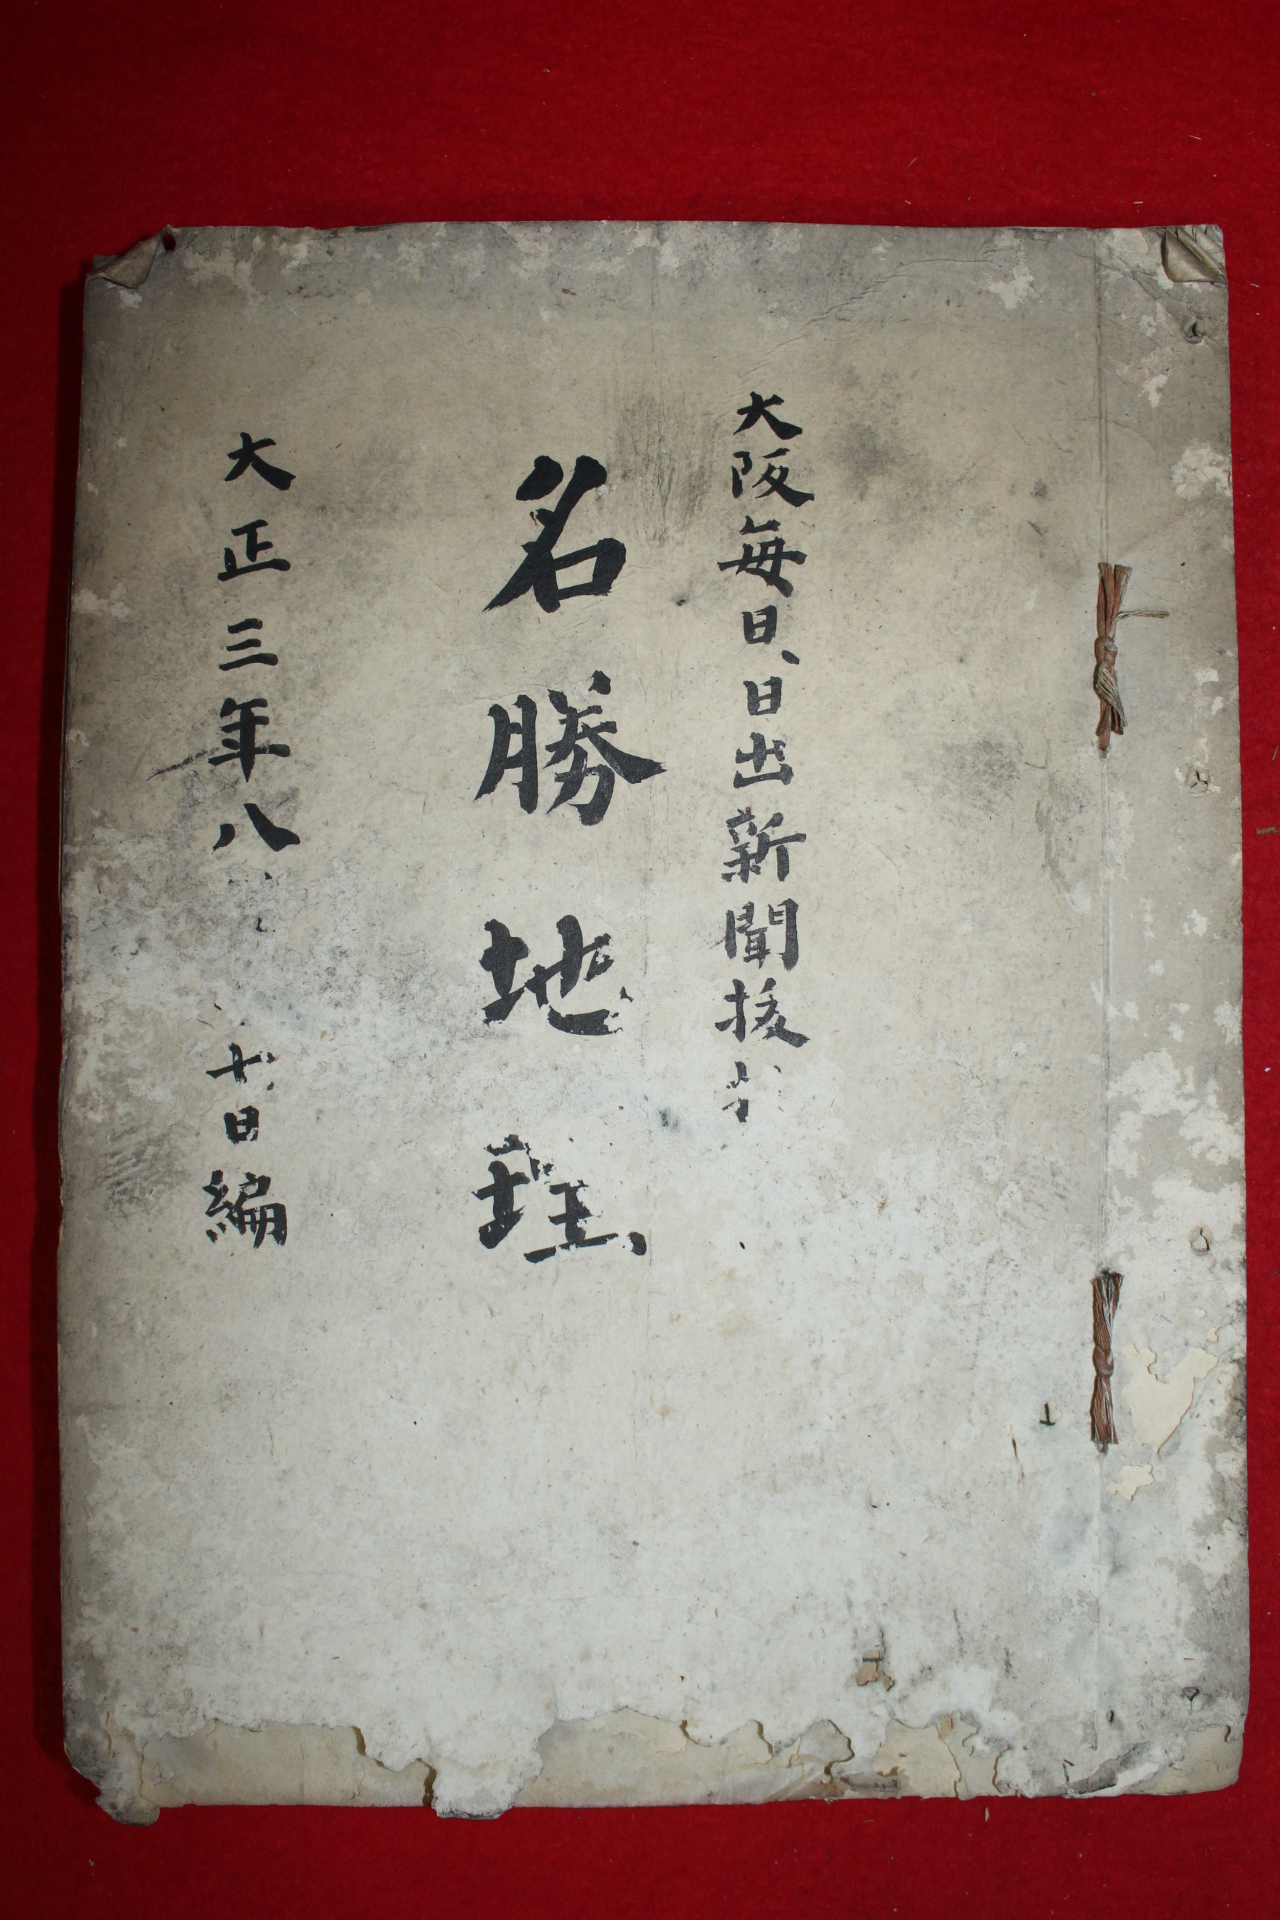 大阪毎日、日出新聞抜
名勝地理、
大正三年八 十日編